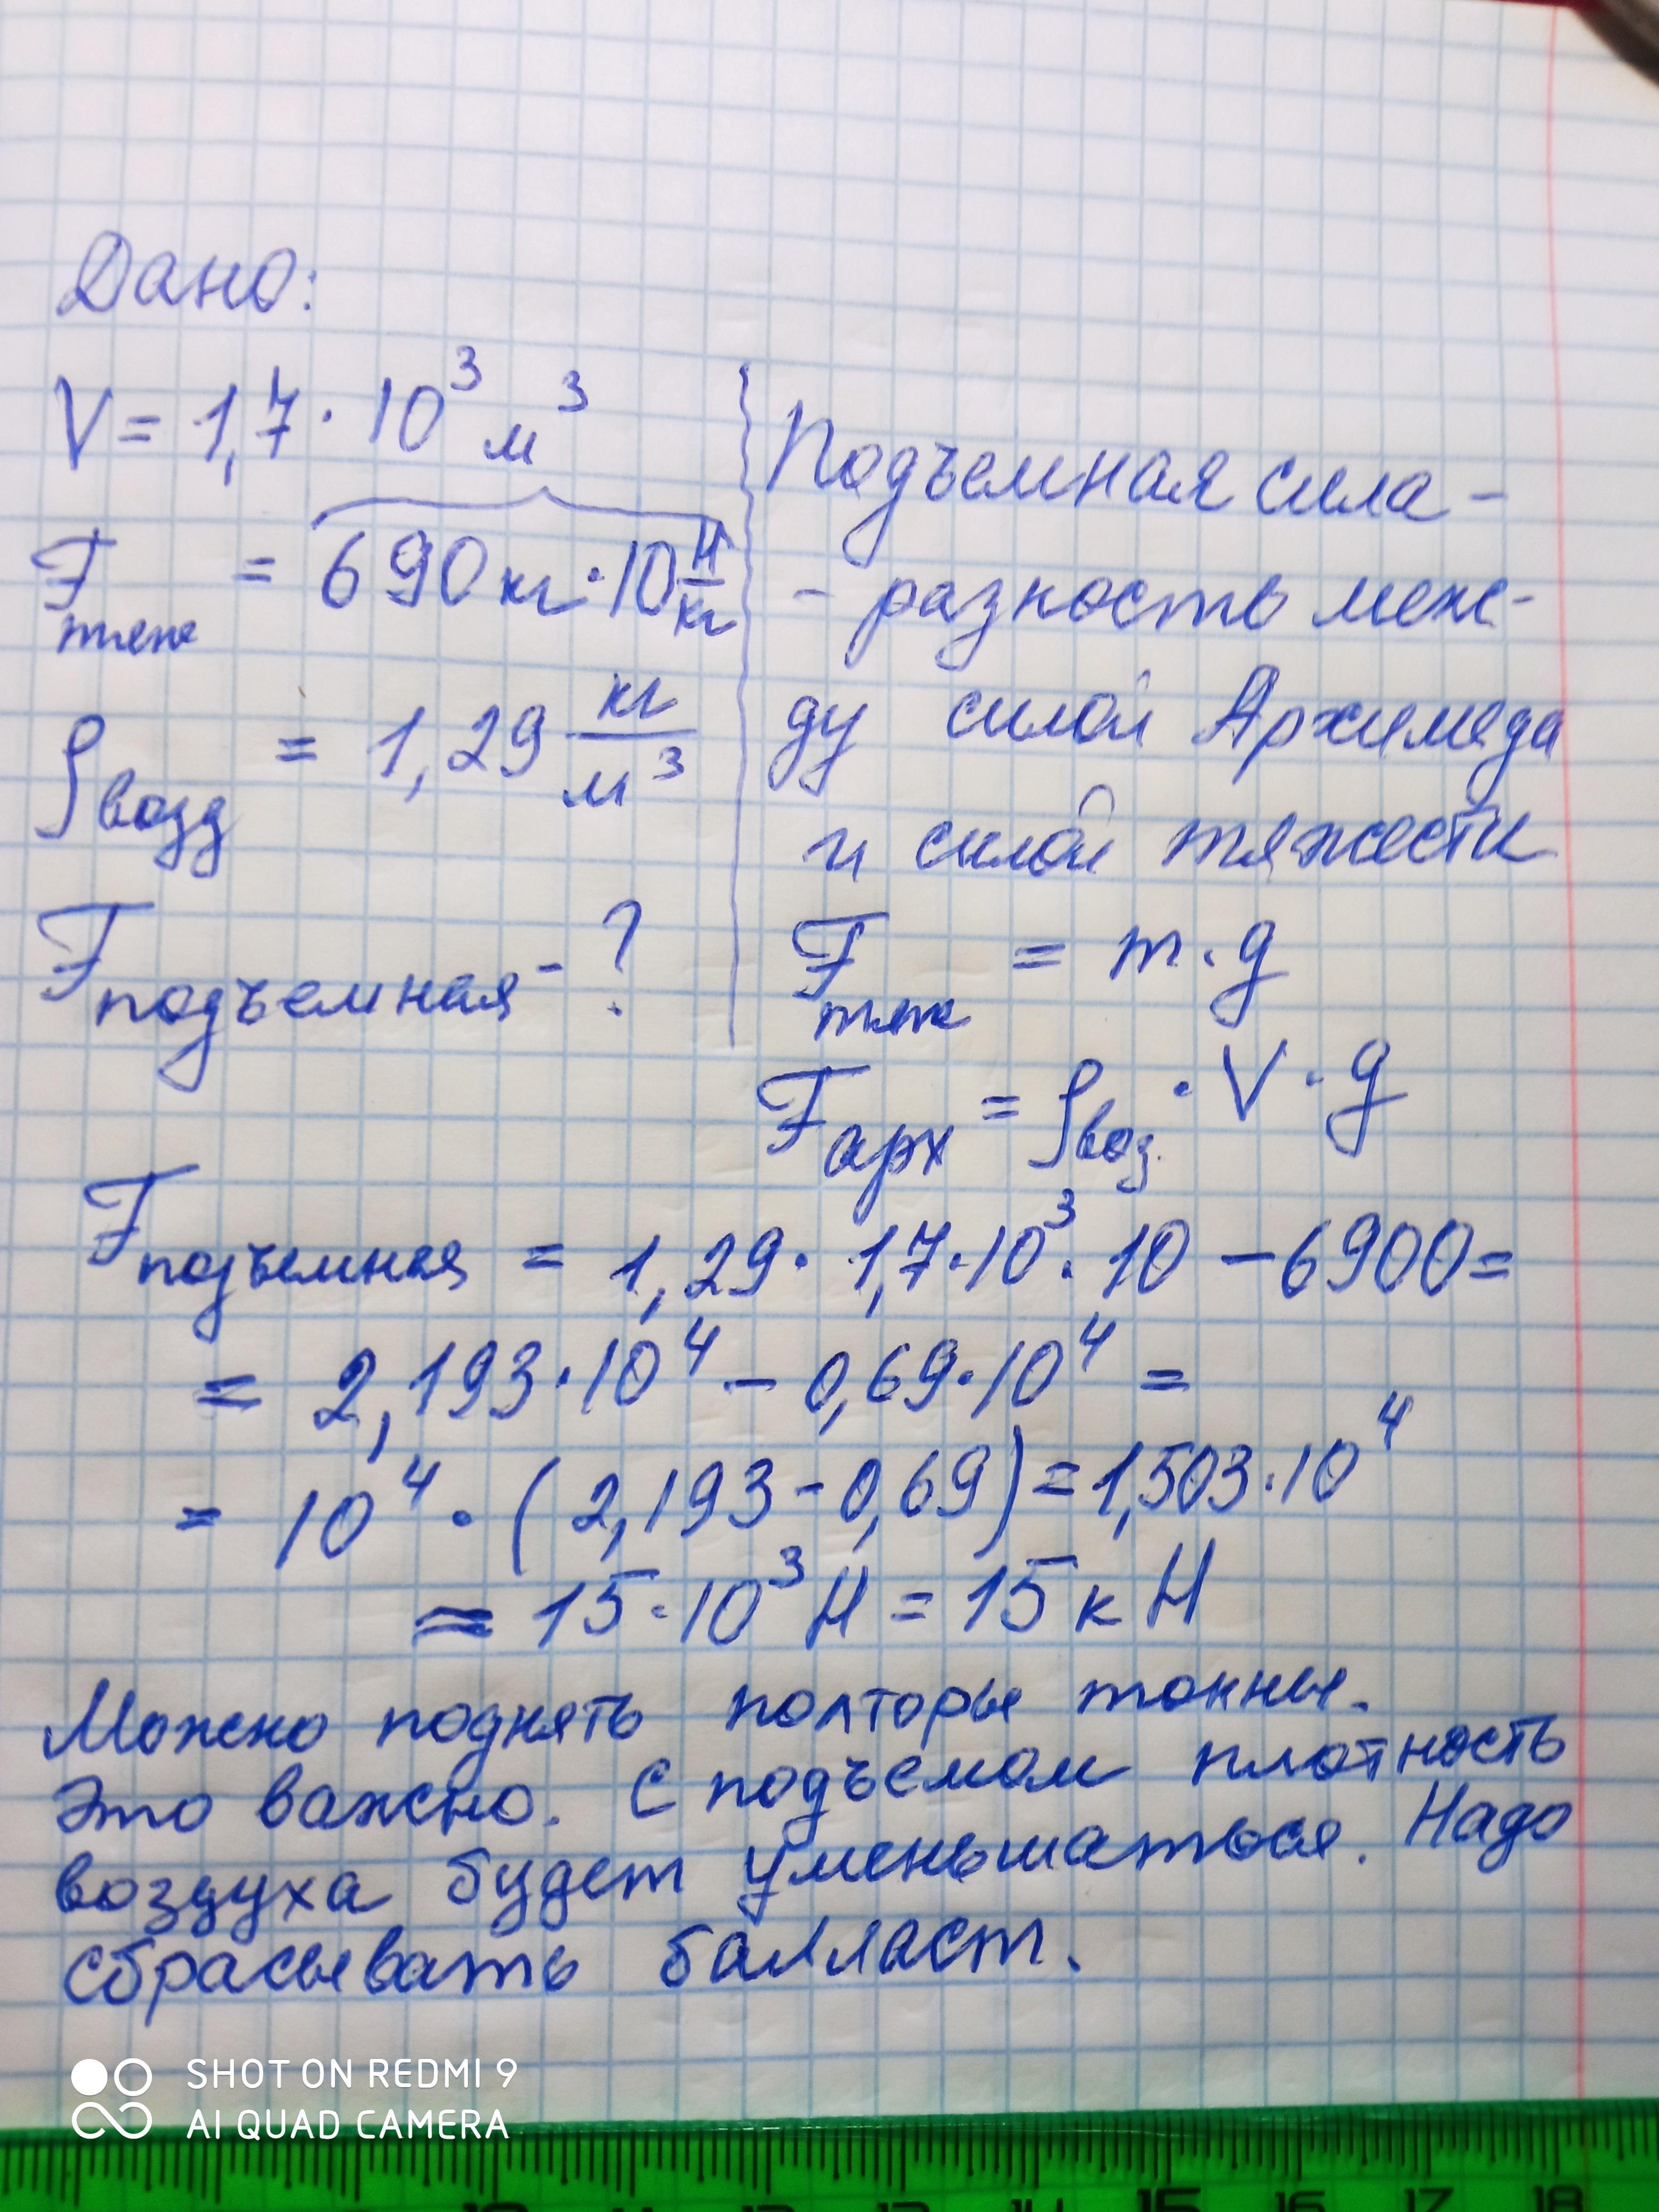 Дано:
V = 1,7 · 10³ м³
Fтяж = 690 кг · 10 Н/кг
ρвозд = 1,29 кг/м³
Fподъемная - ?
Подъемная сила -
- разность меж-
ду силой Архимеда
и силой тяжести
Fтяж = m · g
Fарх = ρвоз. · V · g
Fподъемная = 1,29 · 1,7 · 10³ · 10 - 6900 =
= 2,193 · 10⁴ - 0,69 · 10⁴ =
= 10⁴ · (2,193 - 0,69) = 1,503 · 10⁴
≈ 15 · 10³ Н = 15 к Н
Можно поднять полторы тонны.
Это важно. С подъемом плотность
воздуха будет уменьшаться. Надо
сбрасывать балласт.
SHOT ON REDMI 9
AI QUAD CAMERA
10 11 12 13 14 15 16 17 18